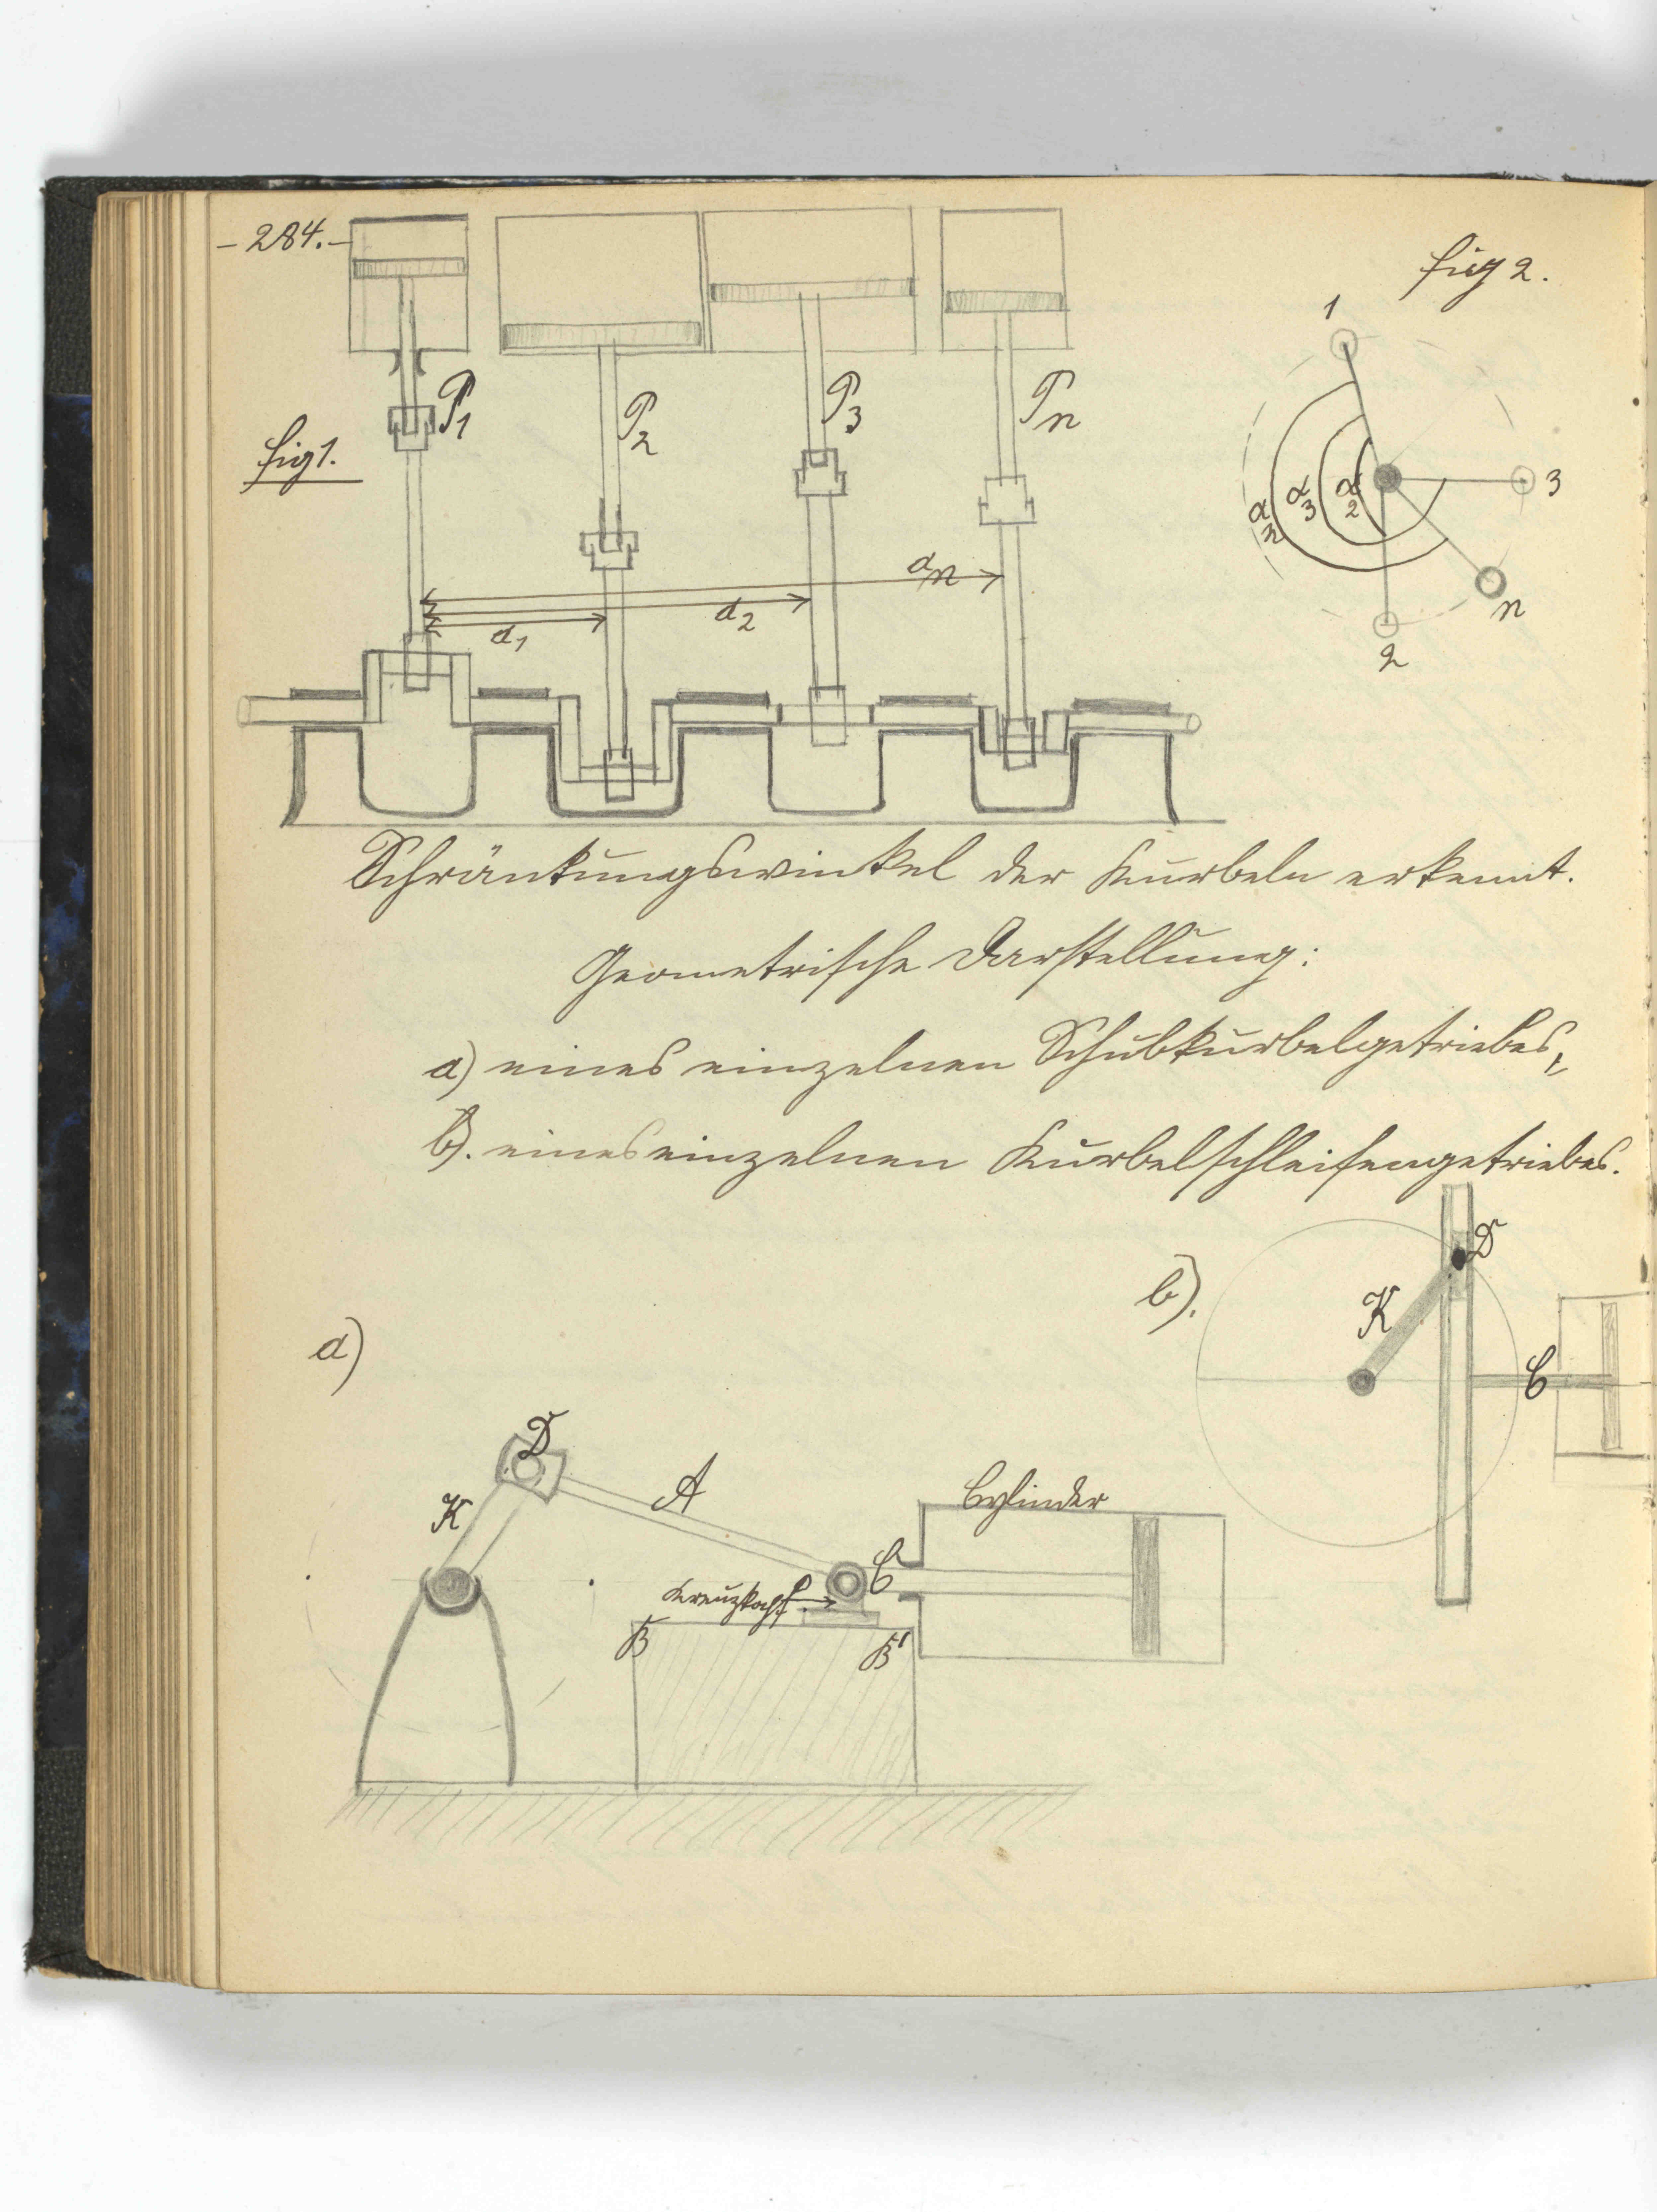 - 284. -
fig 2.
fig 1.
P1
P2
P3
Pn
1
3
n
2
α2
α3
αn
a1
a2
an
Schränkungswinkel der Kurbeln erkennt.
Geometrische Darstellung:
a) eines einzelnen Schubkurbelgetriebes,
b). eines einzelnen Kurbelschleifengetriebes.
b).
D
K
C
a)
D
K
A
Cylinder
C
Kreuzkopf
B
B'